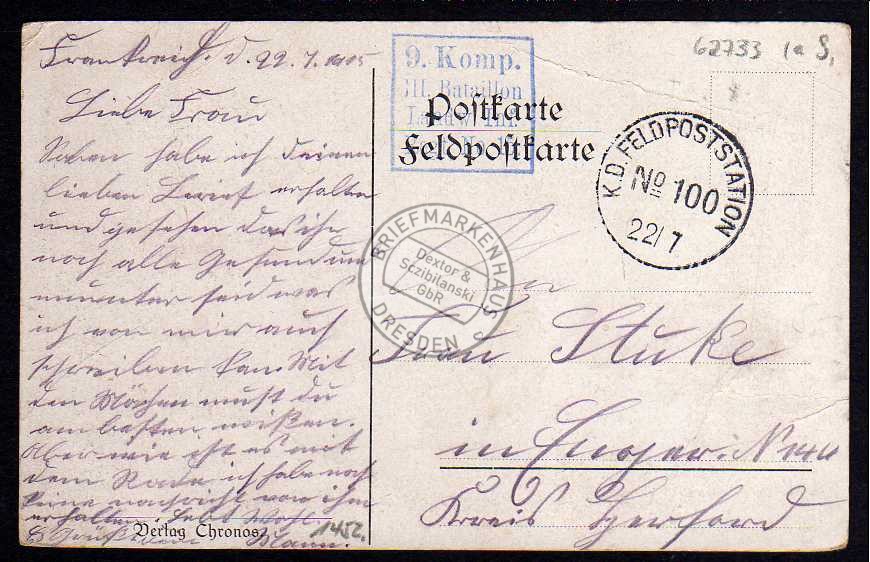 Frankreich. d. 22.7.1915
Liebe Frau
habe ich deinen
lieben Brief erhalten
und gesehen das ihr
noch alle Gesund und
munter seid was
ich von mir auch
schreiben kan. Mit
den must du
am besten wißen.
Aber wie ist es mit
dem ich habe noch
keine nachricht von ihm
erhalten. Lebt Wohl
Mann.
Verlag Chronos
1452.
9. Komp.
III. Bataillon
Landw. Inf.
Postkarte
Feldpostkarte
62733 Ia S,
K.D. FELDPOSTSTATION
No 100
22/7
BRIEFMARKENHAUS
Dextor &
Sczibilanski
GbR
DRESDEN
An
Frau Stuke
in
Kreis Herford